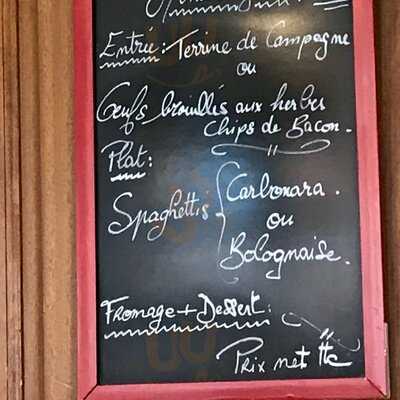 Entrée : Terrine de Campagne
ou
Oeufs brouillés aux herbes
Chips de Bacon.
Plat :
Spaghettis { Carbonara.
ou
Bolognaise.
Fromage + Dessert :
Prix net ttc